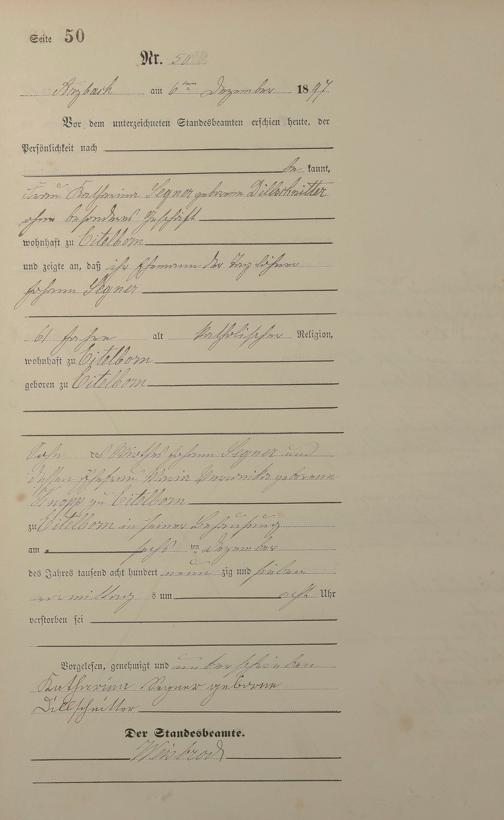 Seite 50
Nr. 50
Arzbach am 6ten Dezember 1897.
Vor dem unterzeichneten Standesbeamten erschien heute, der
Persönlichkeit nach
be kannt,
Frau Katharina Segner geborene Dillschnitter
ohne besonderes Geschäft
wohnhaft zu Eitelborn
und zeigte an, daß ihr Ehemann der Tagelöhner
Johann Segner
61 Jahre alt katholischer Religion,
wohnhaft zu Eitelborn
geboren zu Eitelborn
Sohn des Wirthes Johann Segner und
dessen Ehefrau Maria Veronika geborene
Knopp zu Eitelborn
zu Eitelborn in seiner Behausung
am sechs ten Dezember
des Jahres tausend acht hundert neun zig und sieben
vormittags um acht Uhr
verstorben sei
Vorgelesen, genehmigt und unterschrieben
Katharina Segner geborne
Dillschnitter
Der Standesbeamte.
Weisbrod